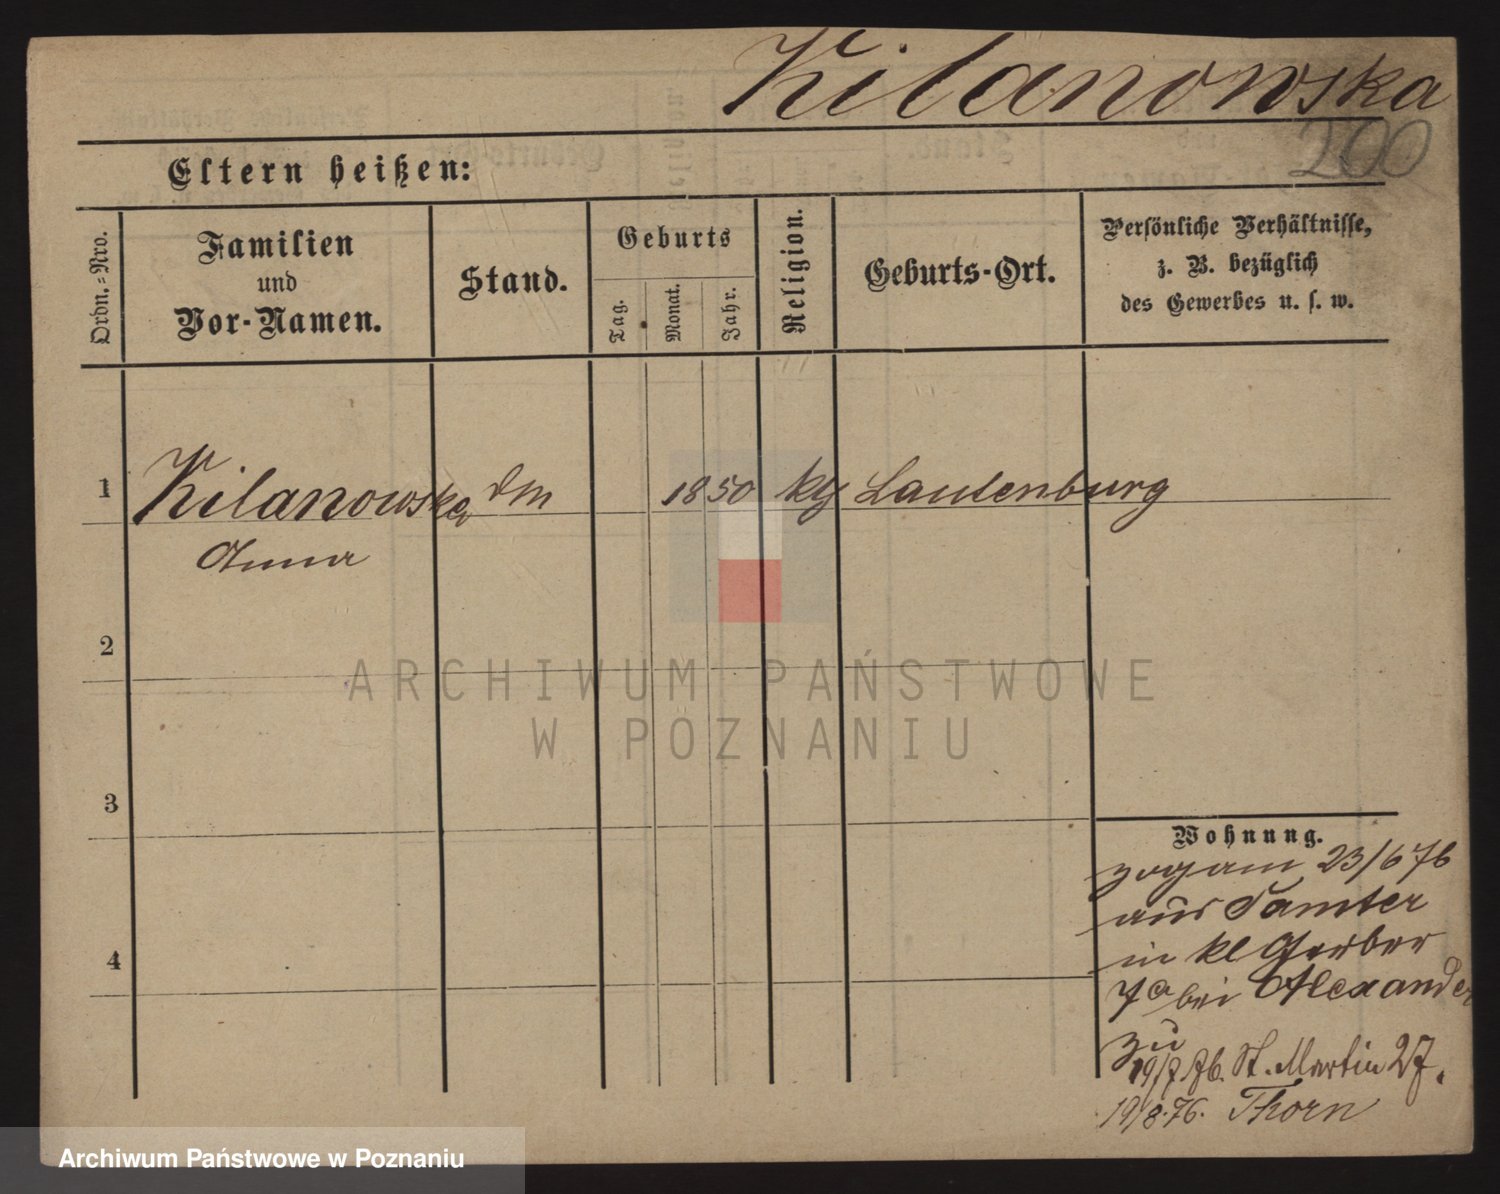 Kilanowska
200
Eltern heißen:
Ordn.-Nro.
Familien
und
Vor-Namen.
Stand.
Geburts
Tag.
Monat.
Jahr.
Religion.
Geburts-Ort.
Persönliche Verhältnisse,
z. B. bezüglich
des Gewerbes u. s. w.
1 Kilanowska dm 1850 kg Lautenburg
Anna
2
3
4
Wohnung.
zog am 23/6 76
aus Samter
in kl Gerber
7a bei Alexander
zu
19/7 76. St. Martin 27.
19/8.76. Thorn
ARCHIWUM PAŃSTWOWE
W POZNANIU
Archiwum Państwowe w Poznaniu